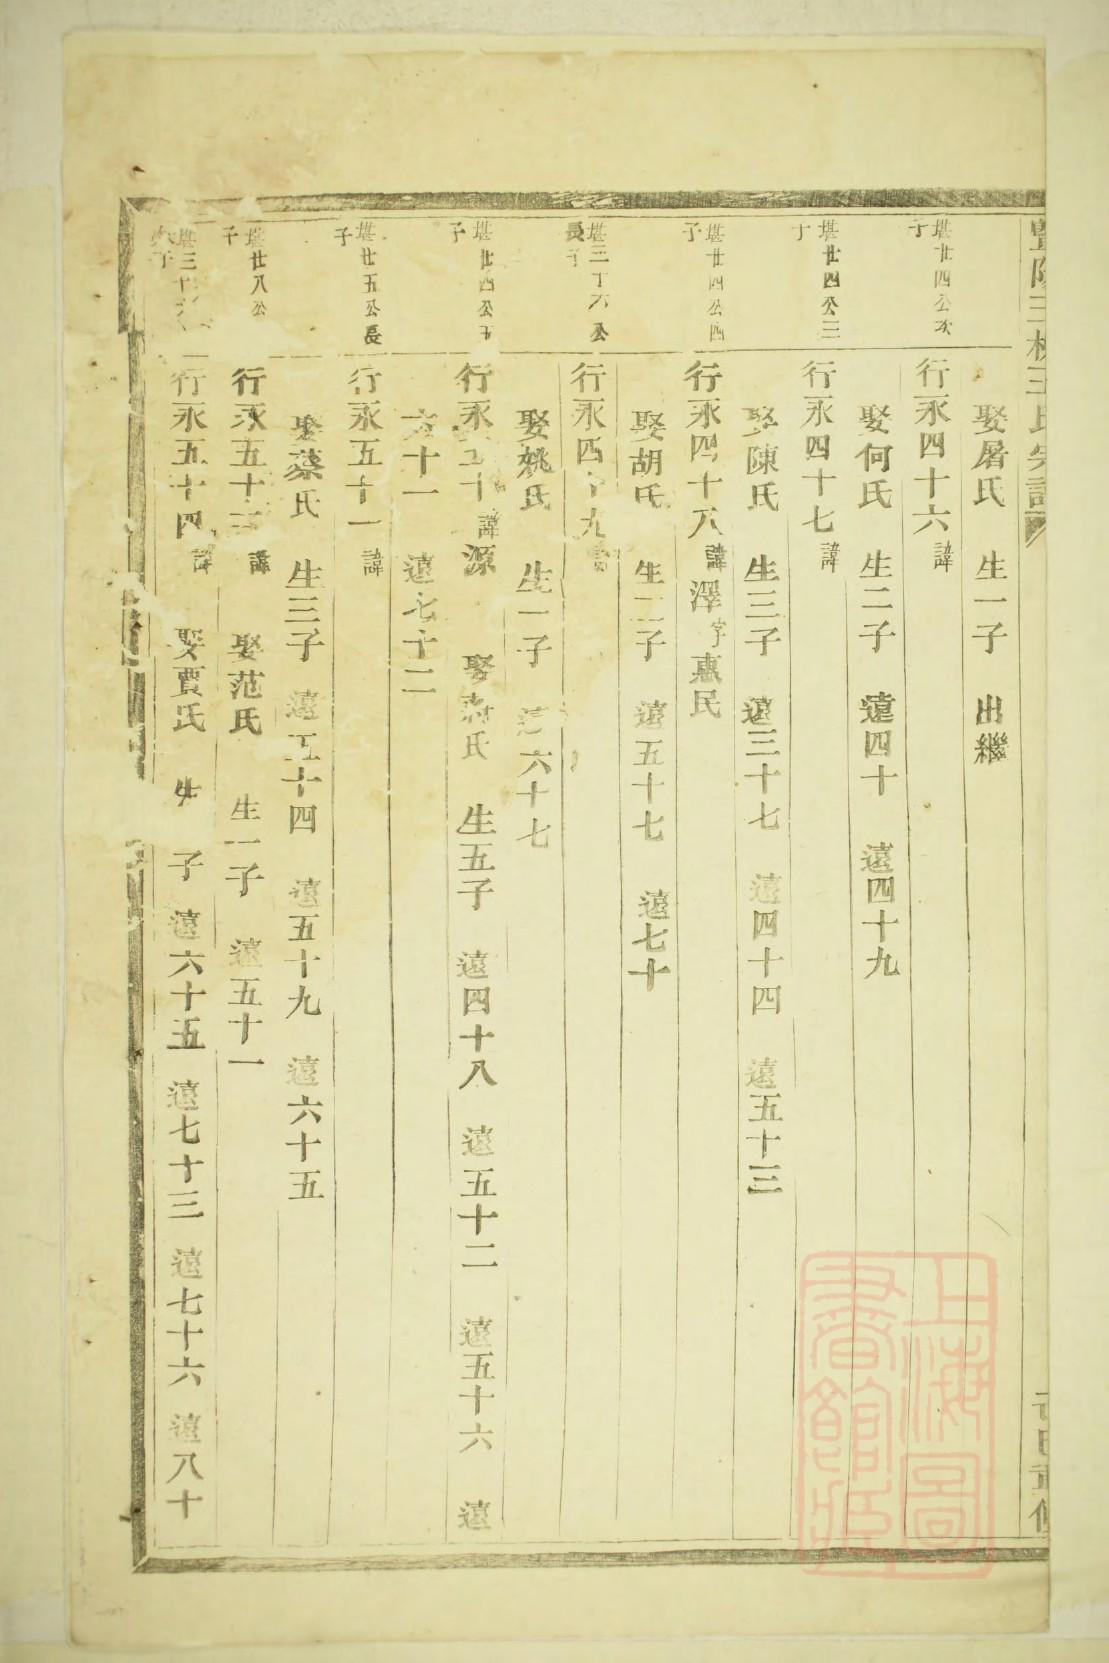 娶屠氏 生一子 出繼
堪廿四公次子
行永四十六 諱
娶何氏 生二子 遠四十 遠四十九
堪廿四公三子
行永四十七 諱
娶陳氏 生三子 遠三十七 遠四十四 遠五十三
堪廿四公四子
行永四十八 諱澤 字惠民
娶胡氏 生二子 遠五十七 遠七十
公長子
行永四十九
娶姚氏 生一子 遠六十七
堪廿四公五子
行永五十 諱源 娶 氏 生五子 遠四十八 遠五十二 遠五十六 遠
六十一 遠七十二
堪廿五公長子
行永五十一 諱
娶蔡氏 生三子 遠五十四 遠五十九 遠六十五
堪廿八公子
行永五十 諱 娶范氏 生一子 遠五十一
行永五十四 諱 娶賈氏 生 子 遠六十五 遠七十三 遠七十六 遠八十
上海圖書館藏